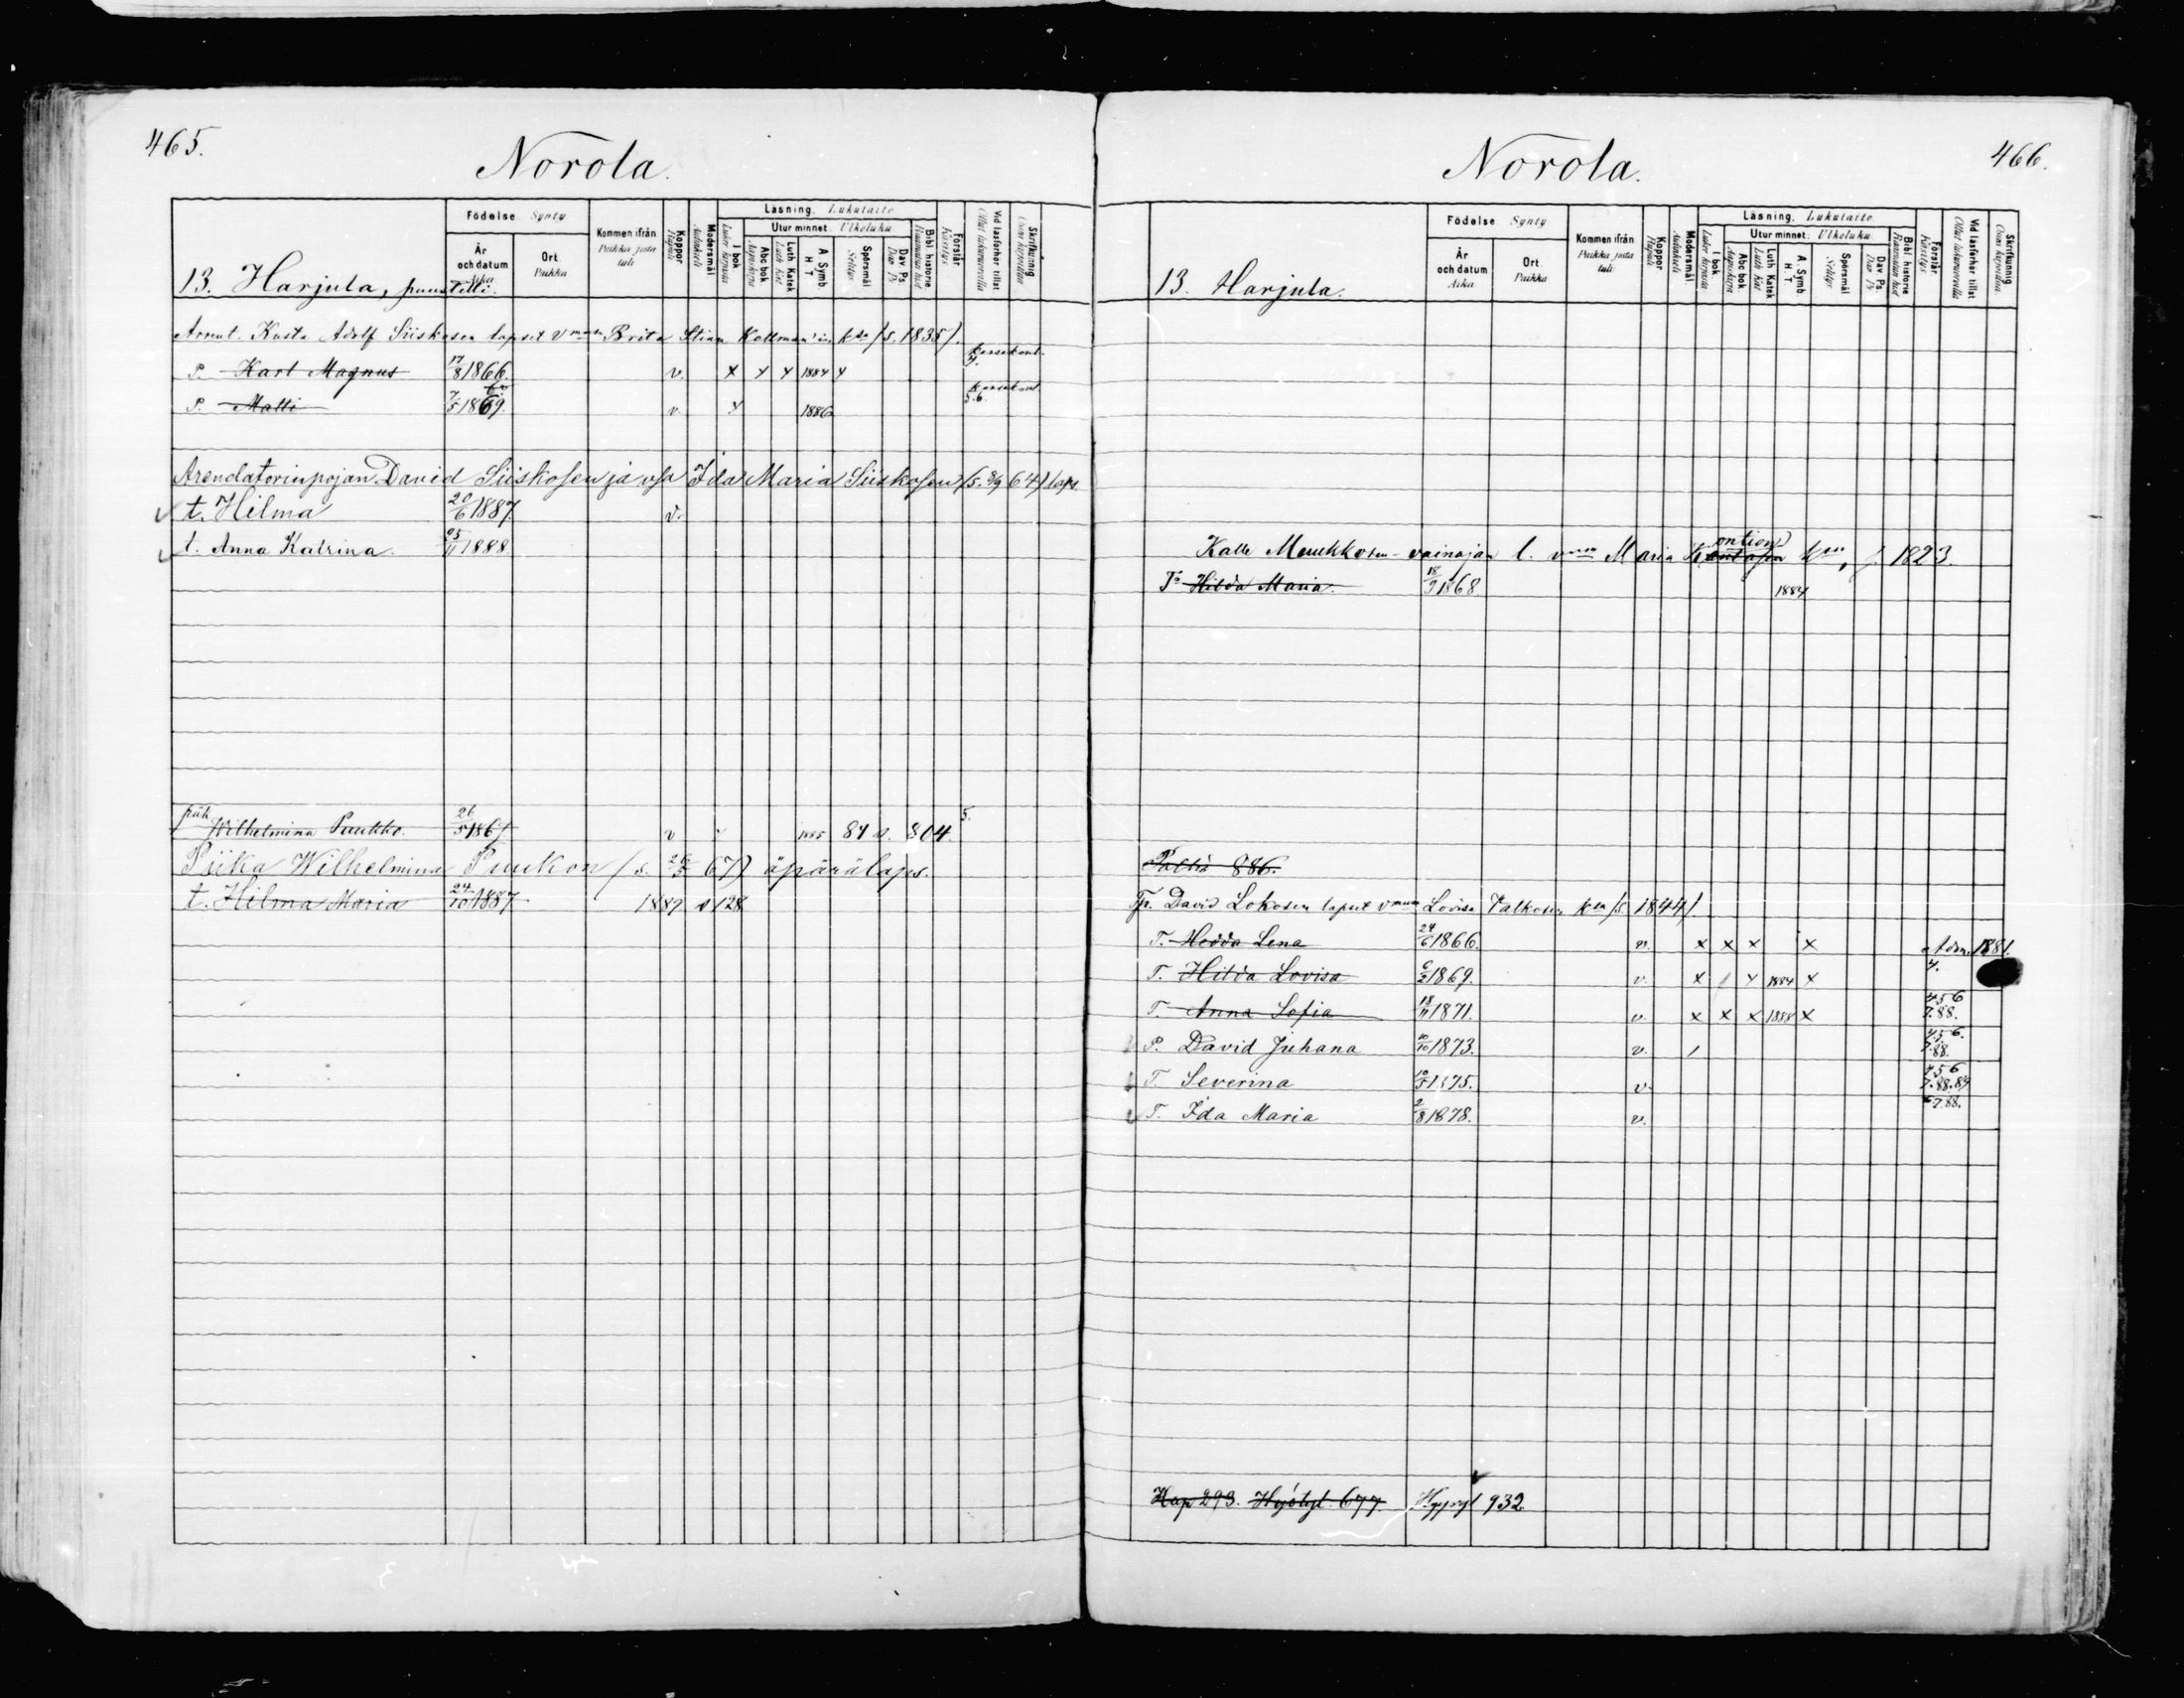 465.
Norola.
Födelse Synty
Läsning. Lukutaito
Kommen ifrån Paikka josta tuli
Koppor Rupuli
Modersmål
Utur minnet: Ulkoluku
År och datum Aika
Ort. Paikka
I bok
Abc bok Aapiskirja
Luth. Katek Luth. Kat
A. Symb. H T
Spörsmål Selitys
Dav. Ps. Dav. Ps
Bibl. historie
Förstår Käsitys
Vid läsförhör tillst
Skrifkunnig Osaa kirjoittaa
13. Harjula, puustelli.
Arrent. Kusta Adolf Siiskosen lapset Brita Stina (s. 1835).
P. Karl Magnus 17/8 1866. v. x x x 1884 x 4.
P. Matti 7/5 1869. v. x 1886 5.6
Arendatorinpojan David Siiskosen ja vsa Ida Maria Siiskosen (s. 64) laps.
t. Hilma 20/6 1887. v.
t. Anna Katrina. 1888.
Wilhelmina Puukko. 26/5 1867 v 1885 84 s. 804. 5.
Piika Wilhelmina Puukon (s. 26/5 67) äpärälaps.
t. Hilma Maria 24/10 1887 1889 s 128
466.
Norola.
Födelse Synty
Läsning. Lukutaito
Kommen ifrån Paikka josta tuli
Koppor Rupuli
Modersmål
Utur minnet: Ulkoluku
År och datum Aika
Ort. Paikka
I bok
Abc bok Aapiskirja
Luth. Katek Luth. Kat
A. Symb. H T
Spörsmål Selitys
Dav. Ps. Dav. Ps
Bibl. historie
Förstår Käsitys
Vid läsförhör tillst
Skrifkunnig Osaa kirjoittaa
13. Harjula.
Kalle vainajan l. Maria 1823.
T. Hilda Maria. 18/9 1868. 1884
886.
David Lokosen lapset Lovisa Valkosen (s. 1844).
T. Hedda Lena 24/6 1866. v. x x x x Adm. 1881.
T. Hilda Lovisa 6/2 1869. v. x x 1884 x 4.
T. Anna Sofia 18/11 1871. v. x x x 1888 x 4 5 6 7.88.
P. David Juhana 10/10 1873. v. 4 5 6. 7.88.
T. Severina 1875. v. 4 5 6 7.88.89
T. Ida Maria 2/8 1878. v. 6 7.88.
Hap 293. 677. 932.